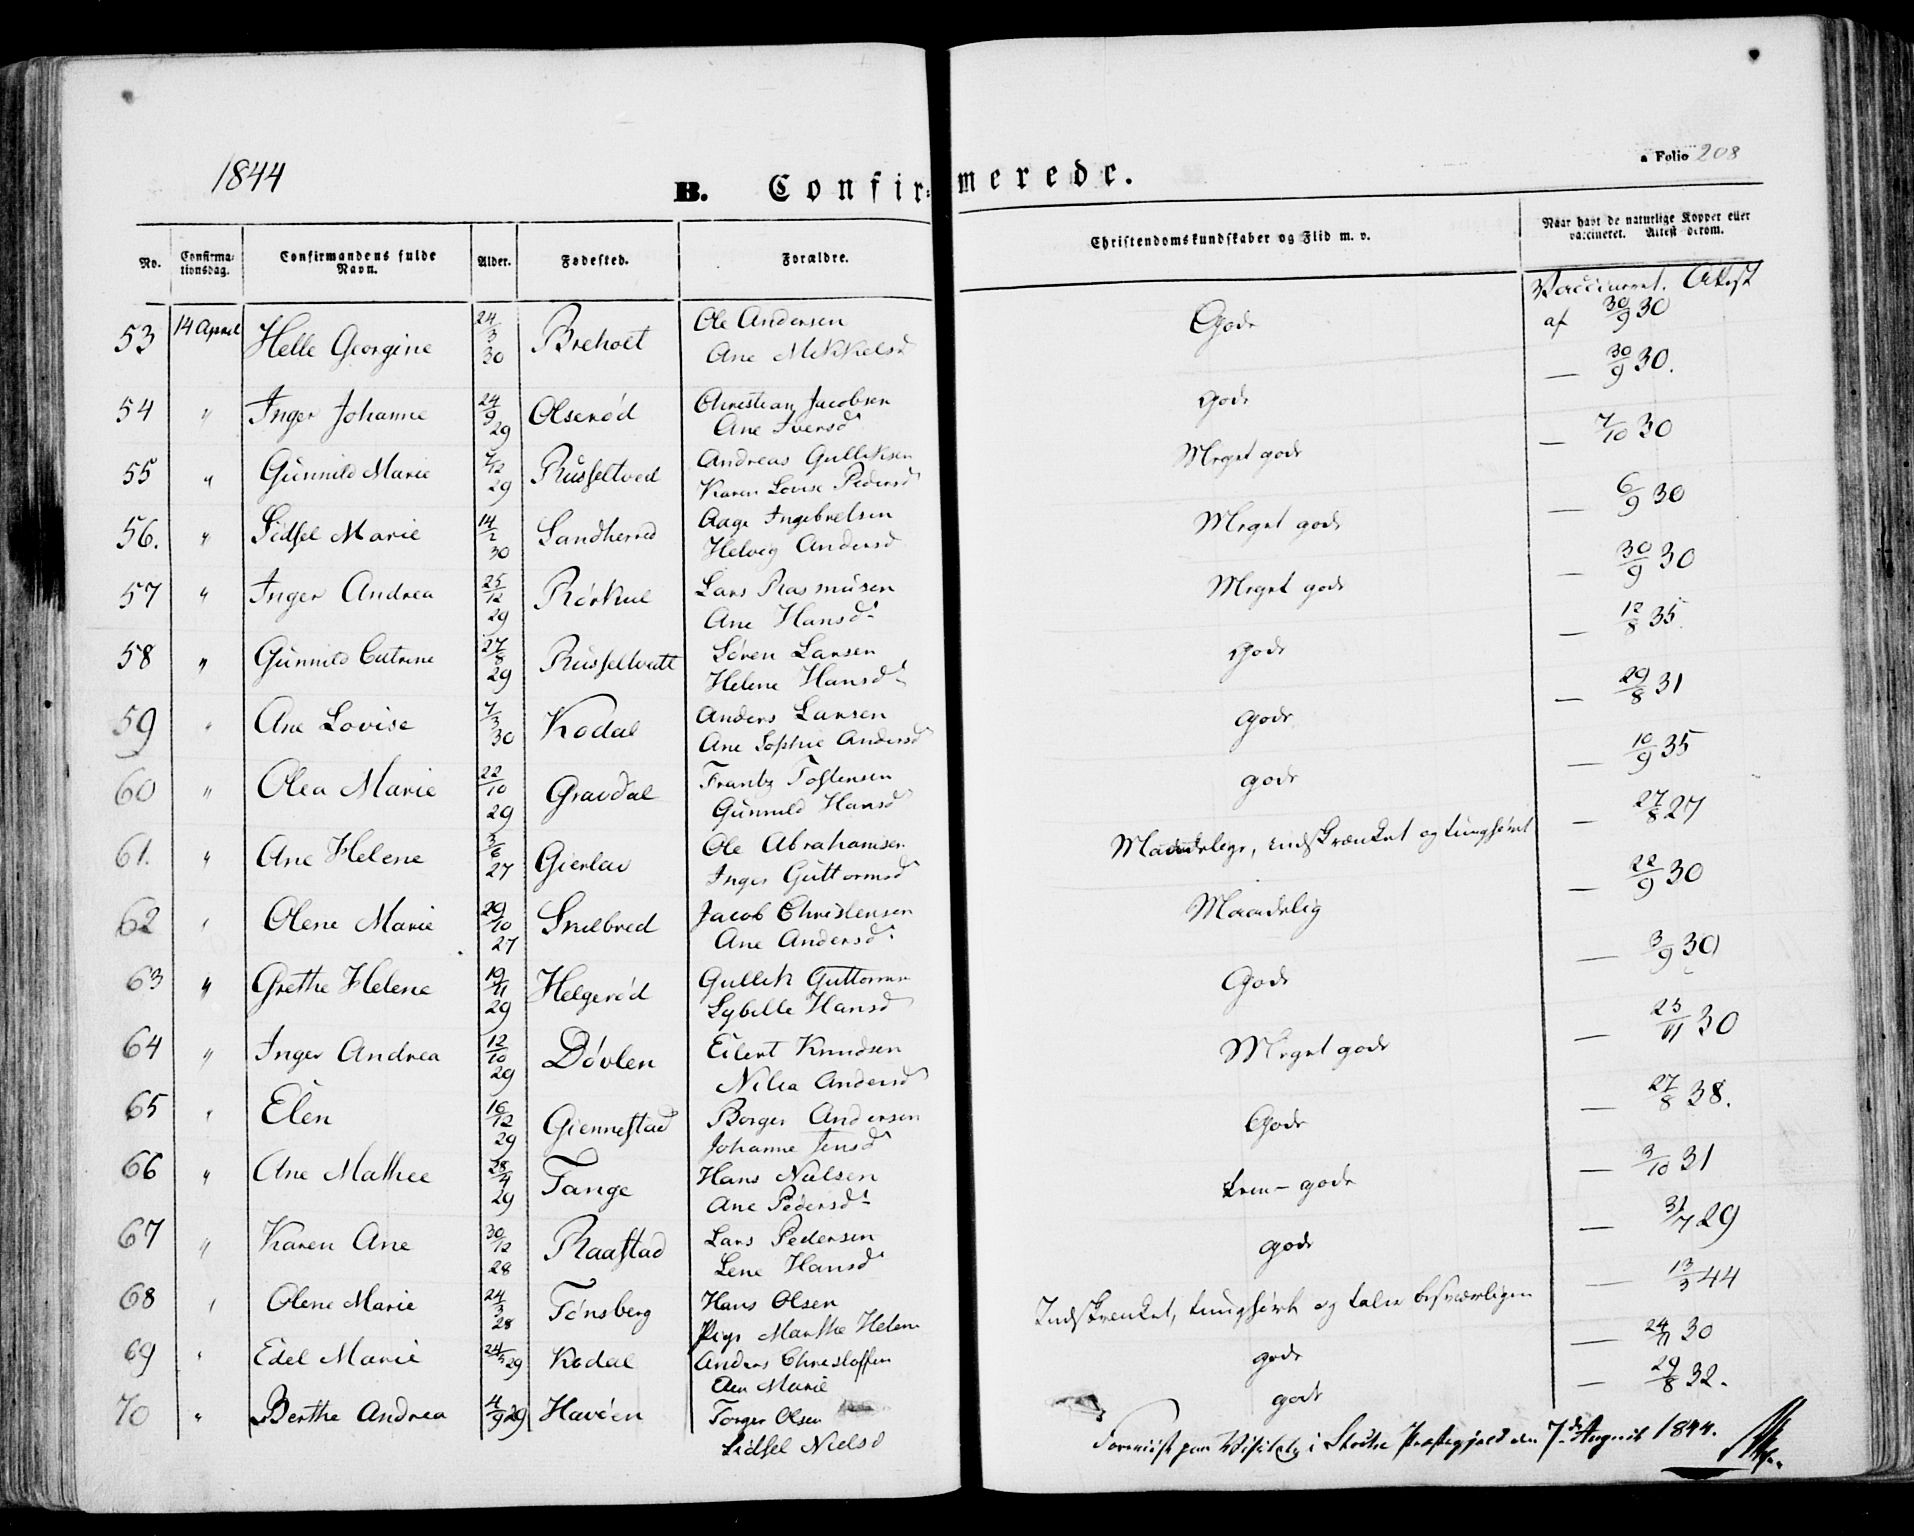 1844
a Folio 208
B. Confir=merede.
No. Confirma=tionsdag. Confirmandens fulde Navn. Alder. Fødested. Forældre. Christendomskundskaber og Flid m. v. Naar havt de naturlige Kopper eller vaccineret. Attest derom.
Vaccineret. Attest
53 14 April Helle Georgine 24/3 30 Breholt Ole Andersen Gode af 30/9 30
Ane Mikkelsd
54 " Inger Johanne 24/9 29 Olserød Christian Jacobsen gode — 30/9 30.
Ane Iversd
55 " Gunnild Marie 29 Russeltved Andreas Gulliksen Meget gode — 7/10 30
Karen Lovise Pedersd
56. " Sidsel Marie 14/2 30 Sandherred Aage Ingebretsen Meget gode — 6/9 30
Helvig Andersd
57 " Inger Andrea 25/12 29 Rørkul Lars Rasmusen Meget gode — 30/9 30
Ane Hansd
58 " Gunnild Catrine 27/8 29 Russeltvedt Søren Larsen gode — 12/8 35.
Helene Hansd
59 " Ane Lovise 7/3 30 Kodal Anders Larsen gode — 29/8 31
Ane Sophie Andersd
60 " Olea Marie 22/10 29 Gravdal Frantz Tostensen gode — 10/9 35
Gunnild Hansd
61. " Ane Helene 3/6 27 Gierlau Ole Abrahamsen Maadelige, indskrænket og tunghørt — 27/8 27
Inger Guttormsd
62 " Olene Marie 29/10 27 Snilbred Jacob Christensen Maadelig — 22/9 30
Ane Andersd
63 " Grethe Helene 19/11 29 Helgerød Gullik Guttormn Gode — 3/9 30
Sybille Hansd
64 " Inger Andrea 12/10 29 Døvlen Eilert Knudsen Meget gode — 23/11 30
Nilia Andersd
65 " Elen 16/12 29 Giennestad Borger Andersen Gode — 27/8 38.
Johanne Jensd
66 " Ane Mathee 28/4 29 Tange Hans Nielsen gode — 3/10 31
Ane Pedersd
67 " Karen Ane 30/12 28 Raastad Lars Pedersen gode — 31/7 29
Lene Hansd
68 " Olene Marie 24/3 28 Tønsberg Hans Olsen Indskrænket, tunghørt og taler besværligen — 13/3 44
Pige Marthe Helene
69 " Edel Marie 29 Kodal Anders Christoffen gode — 24/11 30
Marie
70 " Berthe Andrea 4/9 29 Havéen Torger Olsen godt — 29/8 32.
Sidsel Nielsd
Foreviist paa Visitats i Stokke Præstegjeld den 7de August 1844.